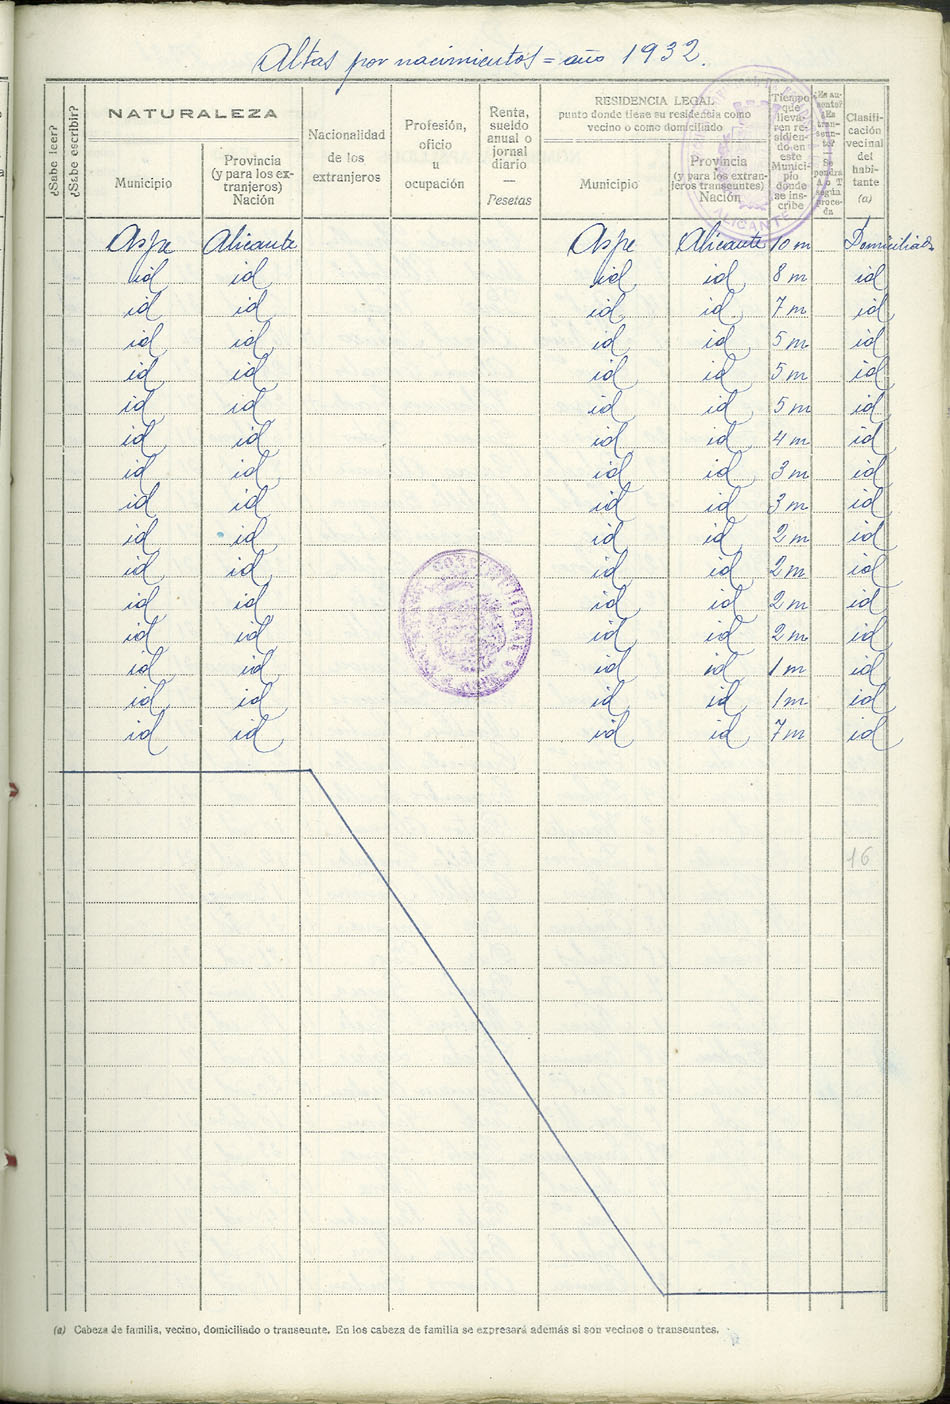 Altas por nacimientos = año 1932.
¿Sabe leer?
¿Sabe escribir?
NATURALEZA
Municipio
Provincia
(y para los ex-
tranjeros)
Nación
Nacionalidad
de los
extranjeros
Profesión,
oficio
u
ocupación
Renta,
sueldo
anual o
jornal
diario
—
Pesetas
RESIDENCIA LEGAL
punto donde tiene su residencia como
vecino o como domiciliado
Municipio
Provincia
(y para los extran-
jeros transeuntes)
Nación
Tiempo
que
lleva-
ren re-
sidien-
do en
este
Munici-
pio
donde
se ins-
cribe
¿Es au-
sente?
¿Es
tran-
seun-
te?
Se
pondrá
A o T
según
proce-
da
Clasifi-
cación
vecinal
del
habi-
tante
(a)
ALICANTE
Aspe Alicante Aspe Alicante 10 m Domiciliado
id id id id 8 m id
id id id id 7 m id
id id id id 5 m id
id id id id 5 m id
id id id id 5 m id
id id id id 4 m id
id id id id 3 m id
id id id id 3 m id
id id id id 2 m id
id id id id 2 m id
id id id id 2 m id
id id id id 2 m id
id id id id 1 m id
id id id id 1 m id
id id id id 7 m id
CONSTITUCIONAL
16
(a) Cabeza de familia, vecino, domiciliado o transeunte. En los cabeza de familia se expresará además si son vecinos o transeuntes.